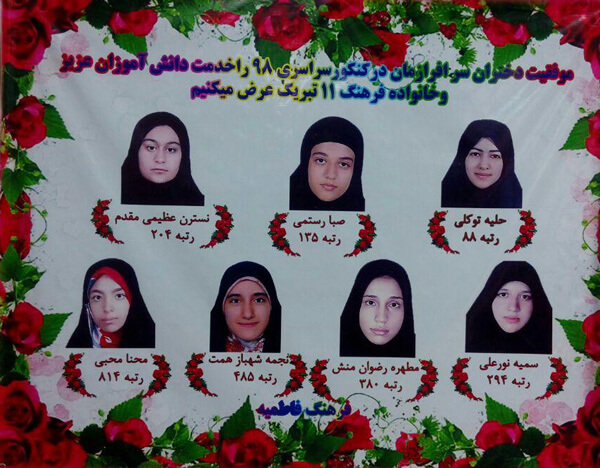 موفقیت دختران سرافرازمان درکنکورسراسری ۹۸ راخدمت دانش آموزان عزیز
وخانواده فرهنگ ۱۱ تبریک عرض میکنیم
حلیه توکلی
رتبه ۸۸
صبا رستمی
رتبه ۱۳۵
نسترن عظیمی مقدم
رتبه ۲۰۴
سمیه نورعلی
رتبه ۲۹۴
مطهره رضوان منش
رتبه ۳۸۰
نجمه شهباز همت
رتبه ۴۸۵
محنا محبی
رتبه ۸۱۴
فرهنگ فاطمیه